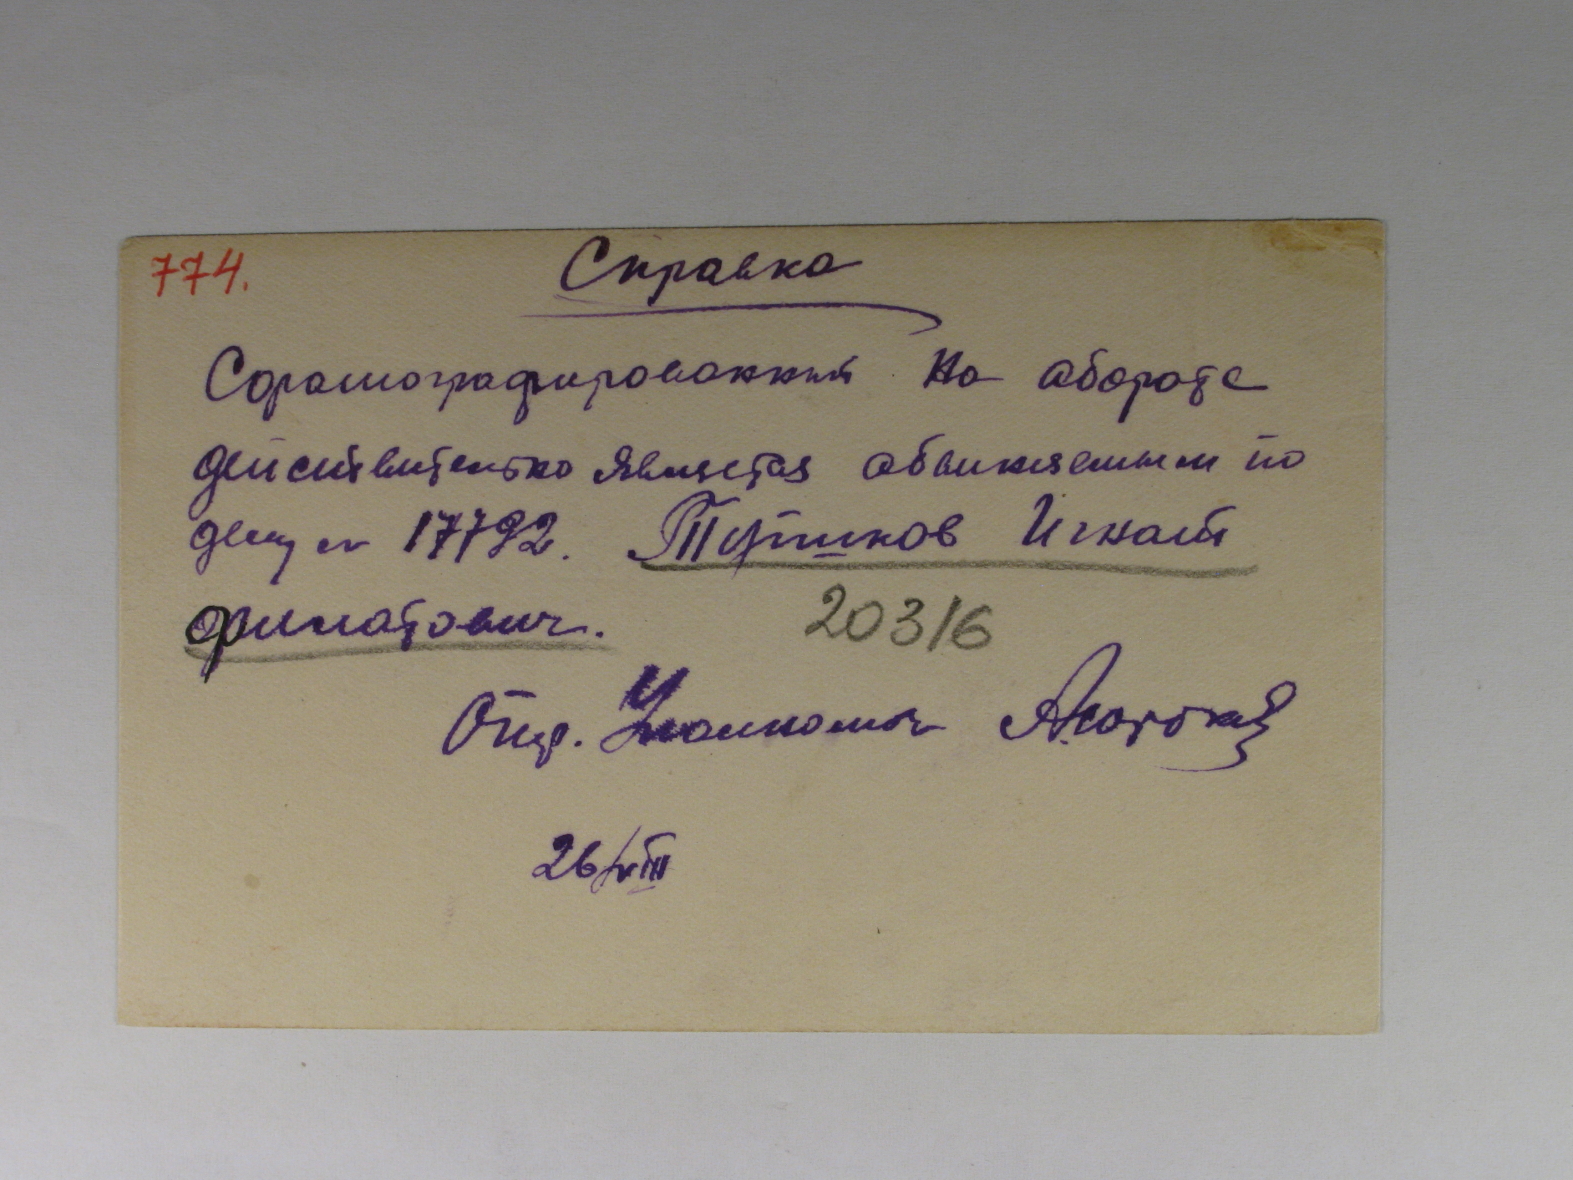 774.
Справка
Сфотографированный на обороте
действительно является обвиняемым по
делу № 17792. Тупиков Игнат
Филатович.
20316
Опер. Уполномоч
26/VIII